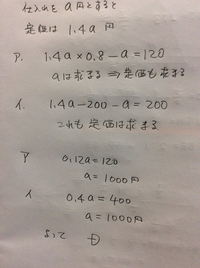 仕入れを a円とすると
定価は 1.4a 円
ア. 1.4a×0.8−a=120
aは求まる ⇒ 定価も求まる
イ. 1.4a−200−a=200
これも 定価は求まる
ア 0.12a=120
a=1000円
イ 0.4a=400
a=1000円
よって